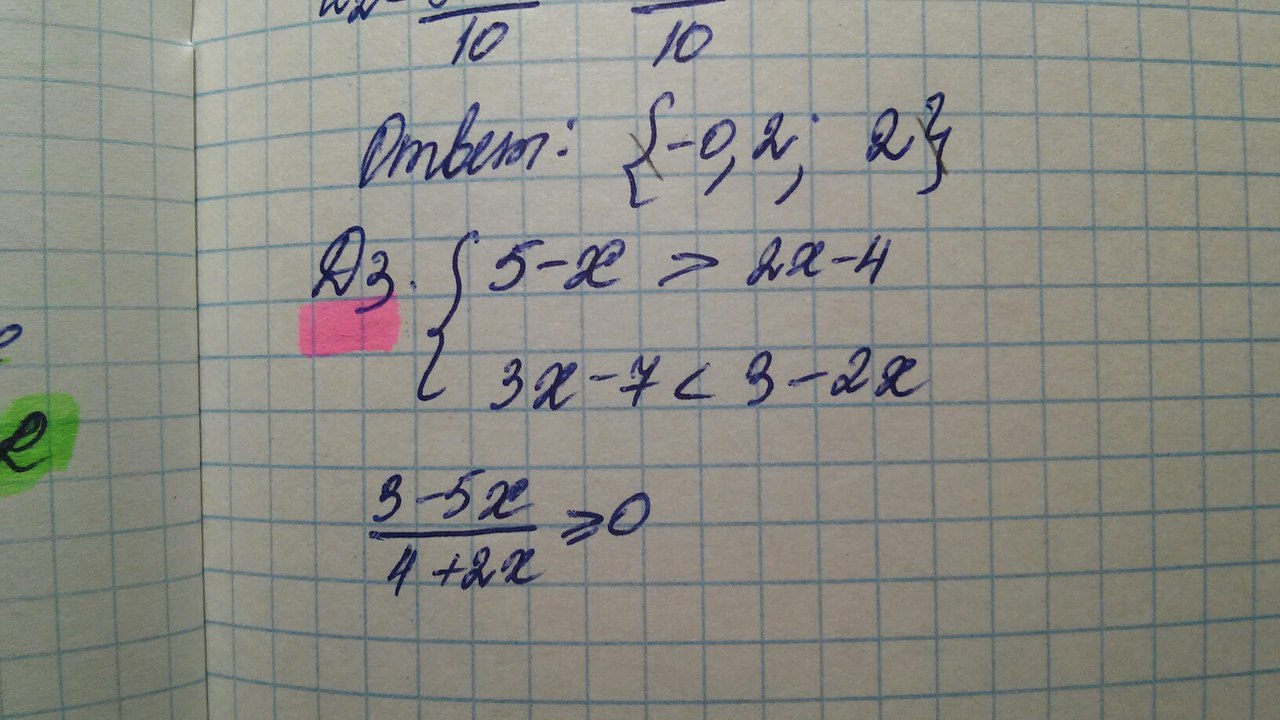 10 10
Ответ: {-0,2; 2}
Дз. { 5-x > 2x-4
3x-7 < 3-2x
3-5x
4+2x ≥0
е